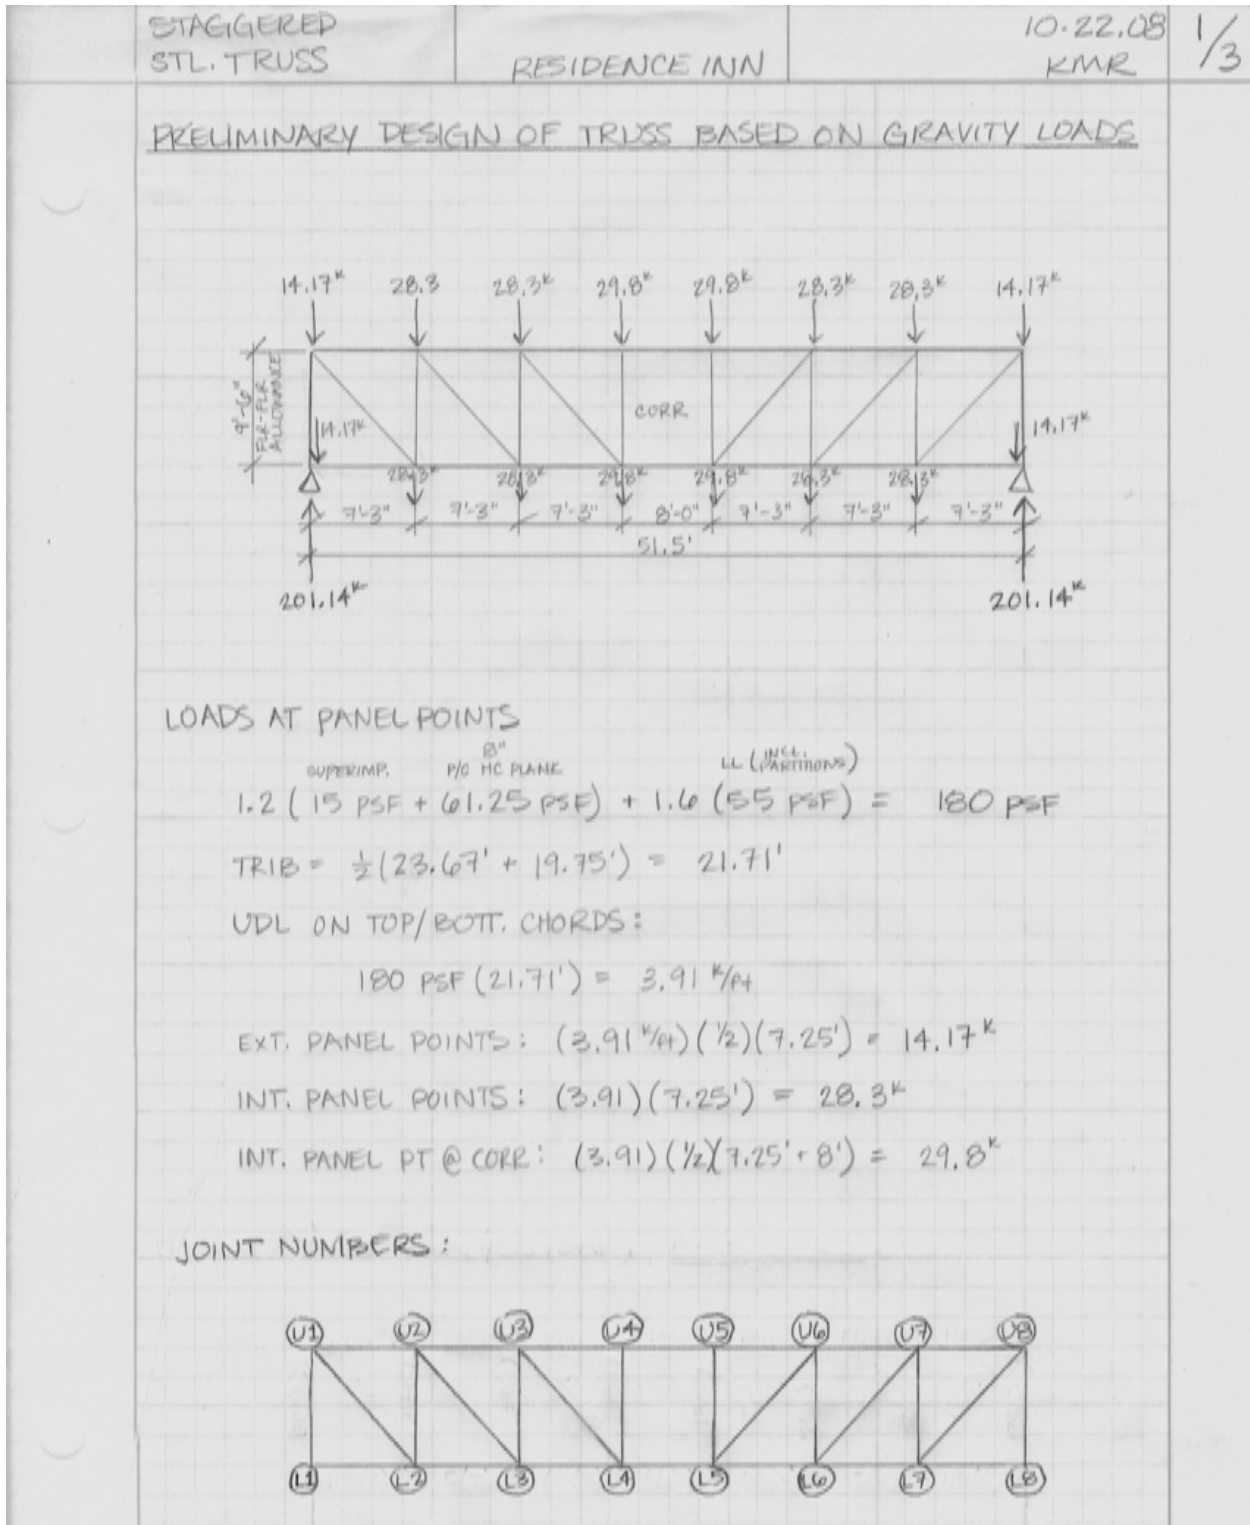 STAGGERED
STL. TRUSS
RESIDENCE INN
10.22.08
KMR
1/3
PRELIMINARY DESIGN OF TRUSS BASED ON GRAVITY LOADS
14.17ᵏ 28.3 28.3ᵏ 29.8ᵏ 29.8ᵏ 28.3ᵏ 28.3ᵏ 14.17ᵏ
9'-6"
FLR-FLR
ALLOWANCE
CORR
14.17ᵏ 14.17ᵏ
28.3ᵏ 28.3ᵏ 29.8ᵏ 29.8ᵏ 28.3ᵏ 28.3ᵏ
7'-3" 7'-3" 7'-3" 8'-0" 7'-3" 7'-3" 7'-3"
51.5'
201.14ᵏ 201.14ᵏ
LOADS AT PANEL POINTS
SUPERIMP. P/C 8" HC PLANK LL (INCL. PARTITIONS)
1.2 ( 15 PSF + 61.25 PSF) + 1.6 (55 PSF) = 180 PSF
TRIB = ½(23.67' + 19.75') = 21.71'
UDL ON TOP/BOTT. CHORDS:
180 PSF (21.71') = 3.91 ᵏ/ft
EXT. PANEL POINTS: (3.91 ᵏ/ft)(½)(7.25') = 14.17ᵏ
INT. PANEL POINTS: (3.91)(7.25') = 28.3ᵏ
INT. PANEL PT @ CORR: (3.91)(½)(7.25' + 8') = 29.8ᵏ
JOINT NUMBERS:
U1 U2 U3 U4 U5 U6 U7 U8
L1 L2 L3 L4 L5 L6 L7 L8